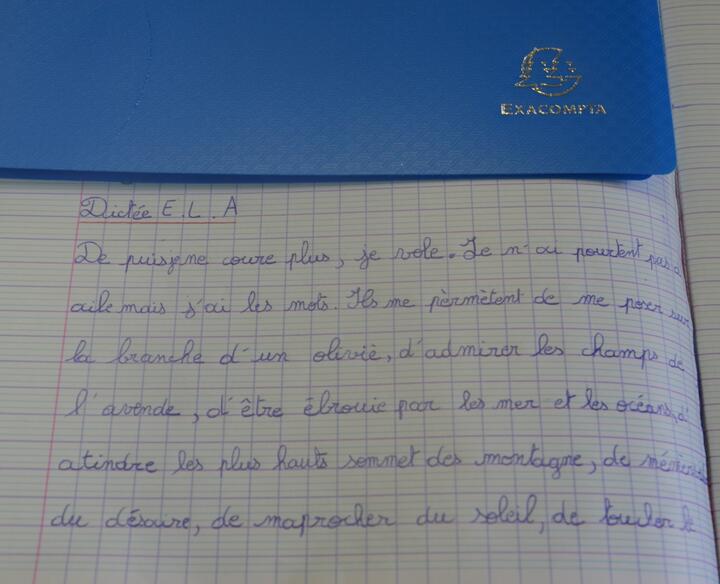 EXACOMPTA
Dictée E.L.A
De puisje ne coure plus, je vole. Je n'ai pourtent pas d
aile mais j'ai les mots. Ils me pèrmètent de me poser sur
la branche d'un olivié, d'admirer les champs de
l'avende, d'être éblouie par les mer et les océans, d'
atindre les plus hauts sommet des montagne, de
du désaire, de maprocher du soleil, de toucher l